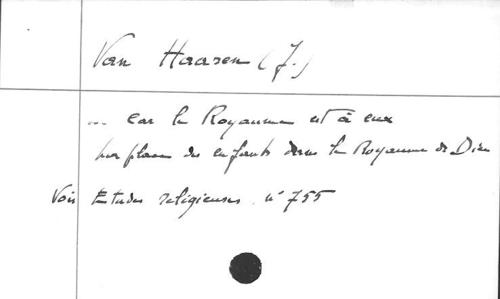 Van Haaren (J.)
... car le Royaume est à eux
place des enfants dans le Royaume de Dieu
Voir Etudes religieuses n° 755